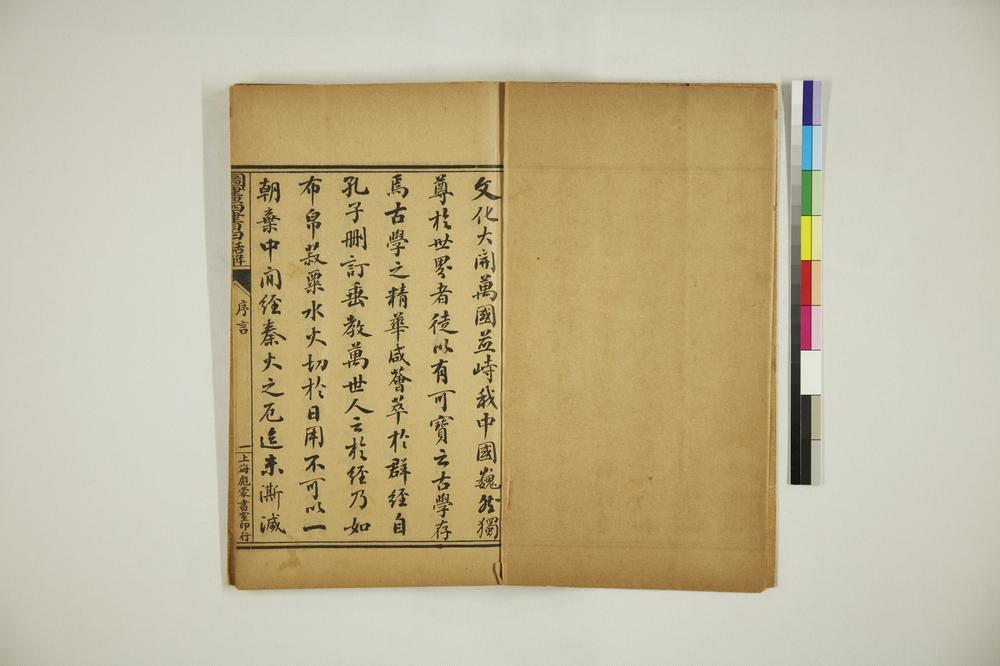 文化大開萬國並峙我中國巍然獨
尊於世界者徒以有可寶之古學存
焉古學之精華咸薈萃於群經自
孔子刪訂垂教萬世人之於經乃如
布帛菽粟水火切於日用不可以一
朝棄中間經秦火之厄迄未澌滅
圖畫四書白話解
序言
一
上海彪蒙書室印行